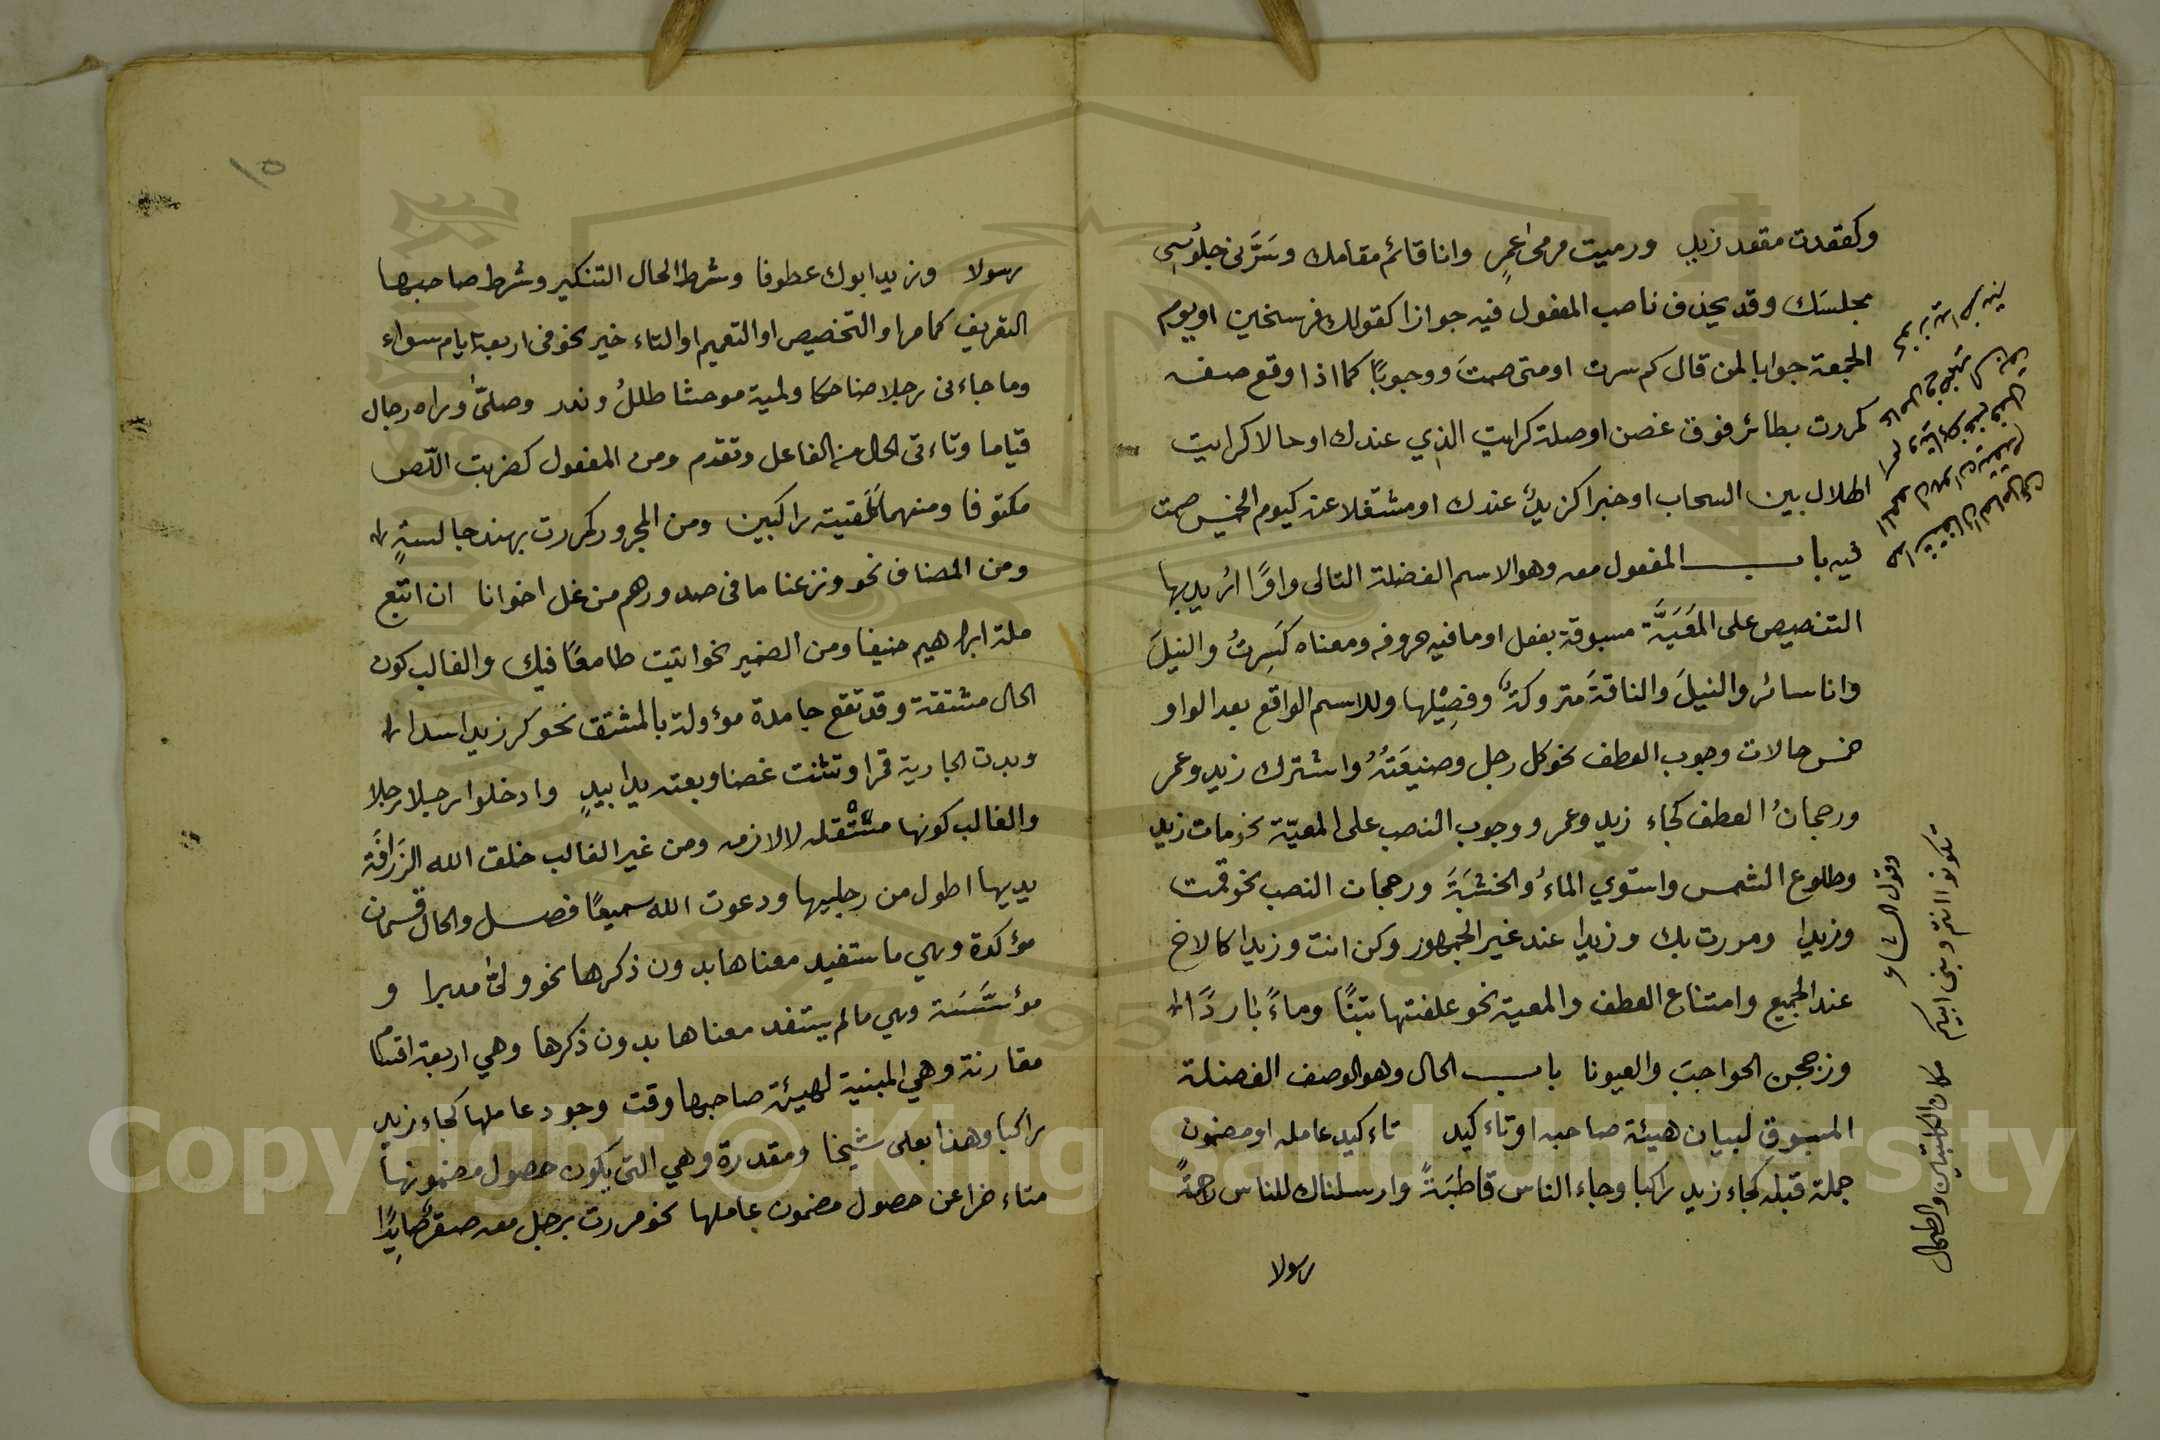 وكقعدت مقعد زيد ورميت مرمى عمرٍ وانا قائم مقامك وسَرَّنى جلوُسِى
مجلسَك وقد يحذف ناصب المفعول فيه جوازا كقولك فرسخين او يوم
الجمعة جوابا لمن قال كم سرت او متى صمتَ ووجوبًا كما اذا وقع صفه
كمررت بطائر فوق غصن او صلة كرايت الذي عندك او حالا كرايت
الهلال بين السحاب او خبرا كزيدٌ عندك او مشتغلا عنه كيوم الخميس صمت
فيه باب المفعول معه وهو الاسم الفضلة التالى واوًا اُريد بها
التنصيص على المَعَيَّة مسبوقة بفعل او ما فيه حروفه ومعناه كَسِرتُ والنيلَ
وانا سائر والنيلَ والناقةَ متروكةٌ وفصِيْلها وللاسم الواقع بعد الواو
خمس حالات وجوب العطف نحو كل رجل وصنيعَتُهُ واشترك زيد وعمر
ورجحانُ العطف كجاء زيد وعمر ووجوب النصب على المعيّة نحو مات زيد
وطلوع الشمس واستوي الماءُ والخشبَةَ ورجحان النصب نحو قمت
وزيدا ومررت بك وزيدا عند غير الجمهور وكن انت وزيدا كالاخ
عند الجميع وامتناع العطف والمعية نحو علفتها تبنًا وماءً باردًا
وزججن الحواجبَ والعيونا باب الحال وهو الوصف الفضلة
المسوق لبيان هيئة صاحبه او تاءكيد تاءكيد عامله او مضمون
جملة قبله كجاء زيد راكبا وجاء الناس قاطبَةً وارسلناك للناس
رسولا
وقول الشاعر
تكونوا انتم وبنى ابيكم مكان الكليتين والطحال
١٥
رسولا وزيد ابوك عطوفا وشرط الحال التنكير وشرط صاحبها
التعريف كما مر او التخصيص او التعميم او التاءخير نحو فى اربعة ايام سواء
وما جاءنى رجلا ضاحكا ولمية موحشا طللُ وندر وصلىّ وراه رجال
قياما وتاءتى الحال من الفاعل وتقدم ومن المفعول كضربت اللّص
مكتوفا ومنهما كلَقيته راكبين ومن المجرور كمررت بهند جالسةٍ
ومن المضاف نحو ونزعنا ما فى صدورهم من غل اخوانا ان اتبع
ملة ابراهيم حنيفا ومن الضمير نحو اتيت طامعًا فيك والغالب كون
الحال مشتقة وقد تقع جامدة مؤولة بالمشتق نحو كر زيد اسدا
وبدت الجارية قمرا وتثنت غصنا وبعته يدا بيدٍ وادخلوا رجلا رجلا
والغالب كونها منتقله لا لازمه ومن غير الغالب خلق الله الزَرَافَة
يديها اطول من رجليها ودعوت الله سميعًا فصل والحال قسمان
مؤكدة وهي ما ستفيد معناها بدون ذكرها نحو ولىّ مدبرا و
مؤسَّسَة وهي ما لم يستفد معناها بدون ذكرها وهي اربعة اقسام
مقارنة وهي المبنية لهيئة صاحبها وقت وجود عاملها كجاء زيد
راكبا وهذا بعلى شيخا ومقدرة وهي التى يكون حصول مضمونها
متاءخرا عن حصول مضمون عاملها نحو مررت برجل معه صقر صايِدًا
Copyright © King Saud University
1957